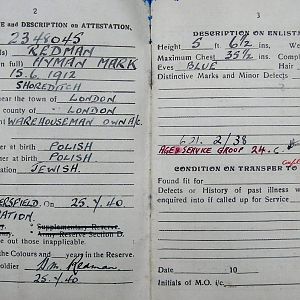 2
E and DESCRIPTION on ATTESTATION.
2348045
REDMAN
in full) HYMAN MARK
15.6.1912
SHOREDITCH
near the town of LONDON
county of LONDON
WAREHOUSEMAN OWN A/C.
er at birth POLISH
er at birth POLISH
nation JEWISH.
ERSFIELD. On 25.7.40
RATION.
Supplementary Reserve.
Army Reserve Section D.
ke out those inapplicable.
e Colours and years in the Reserve.
oldier H.M. Redman
25.7.40
3
DESCRIPTION ON ENLIST
Height 5 ft. 6½ ins. W
Maximum Chest 35½ ins. Comple
Eyes BLUE Hair
Distinctive Marks and Minor Defects
2/38
AGE & SERVICE GROUP 24. C.
CONDITION ON TRANSFER TO
Found fit for
Defects or History of past illness w
enquired into if called up for Service
Date 19
Initials of M.O. i/c.